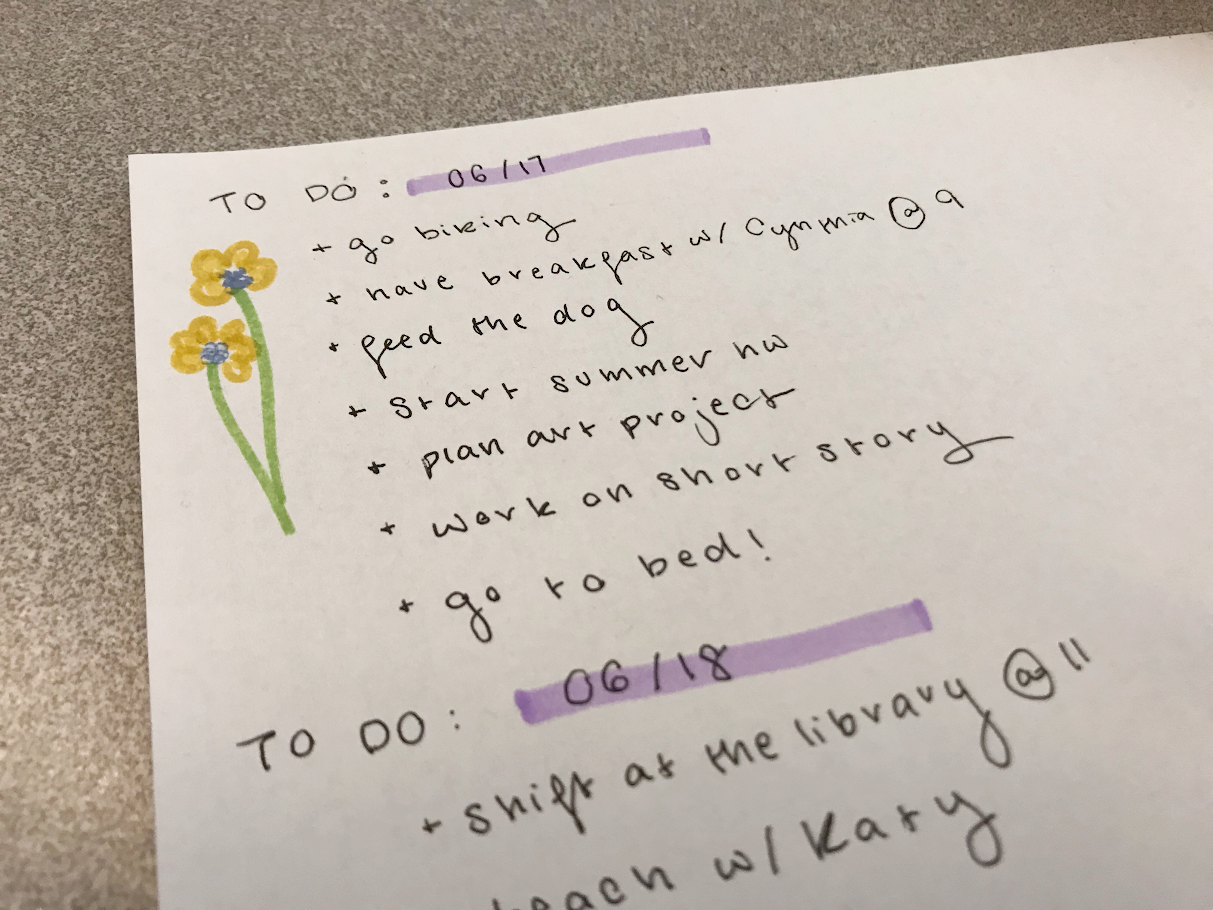 TO DO: 06/17
+ go biking
+ have breakfast w/ Cynthia @ 9
+ feed the dog
+ start summer hw
+ plan art project
+ work on short story
+ go to bed!
TO DO: 06/18
+ shift at the library @ 11
beach w/ Katy